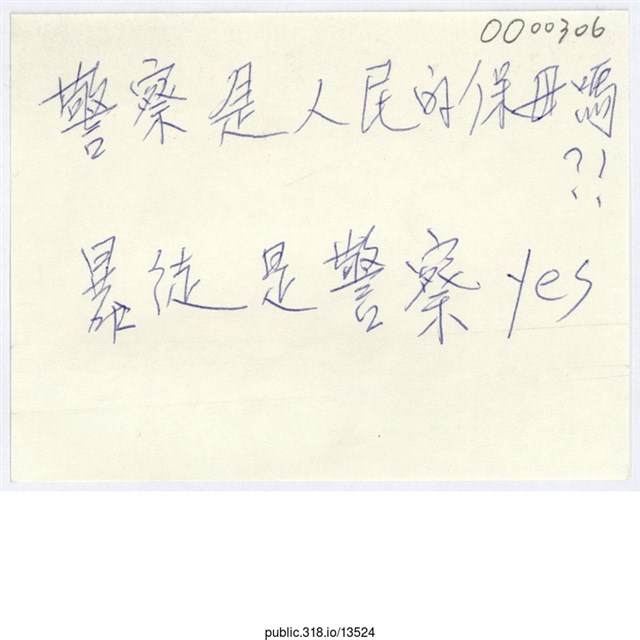 0000306
警察是人民的保母嗎
?!
暴徒是警察 yes
public.318.io/13524